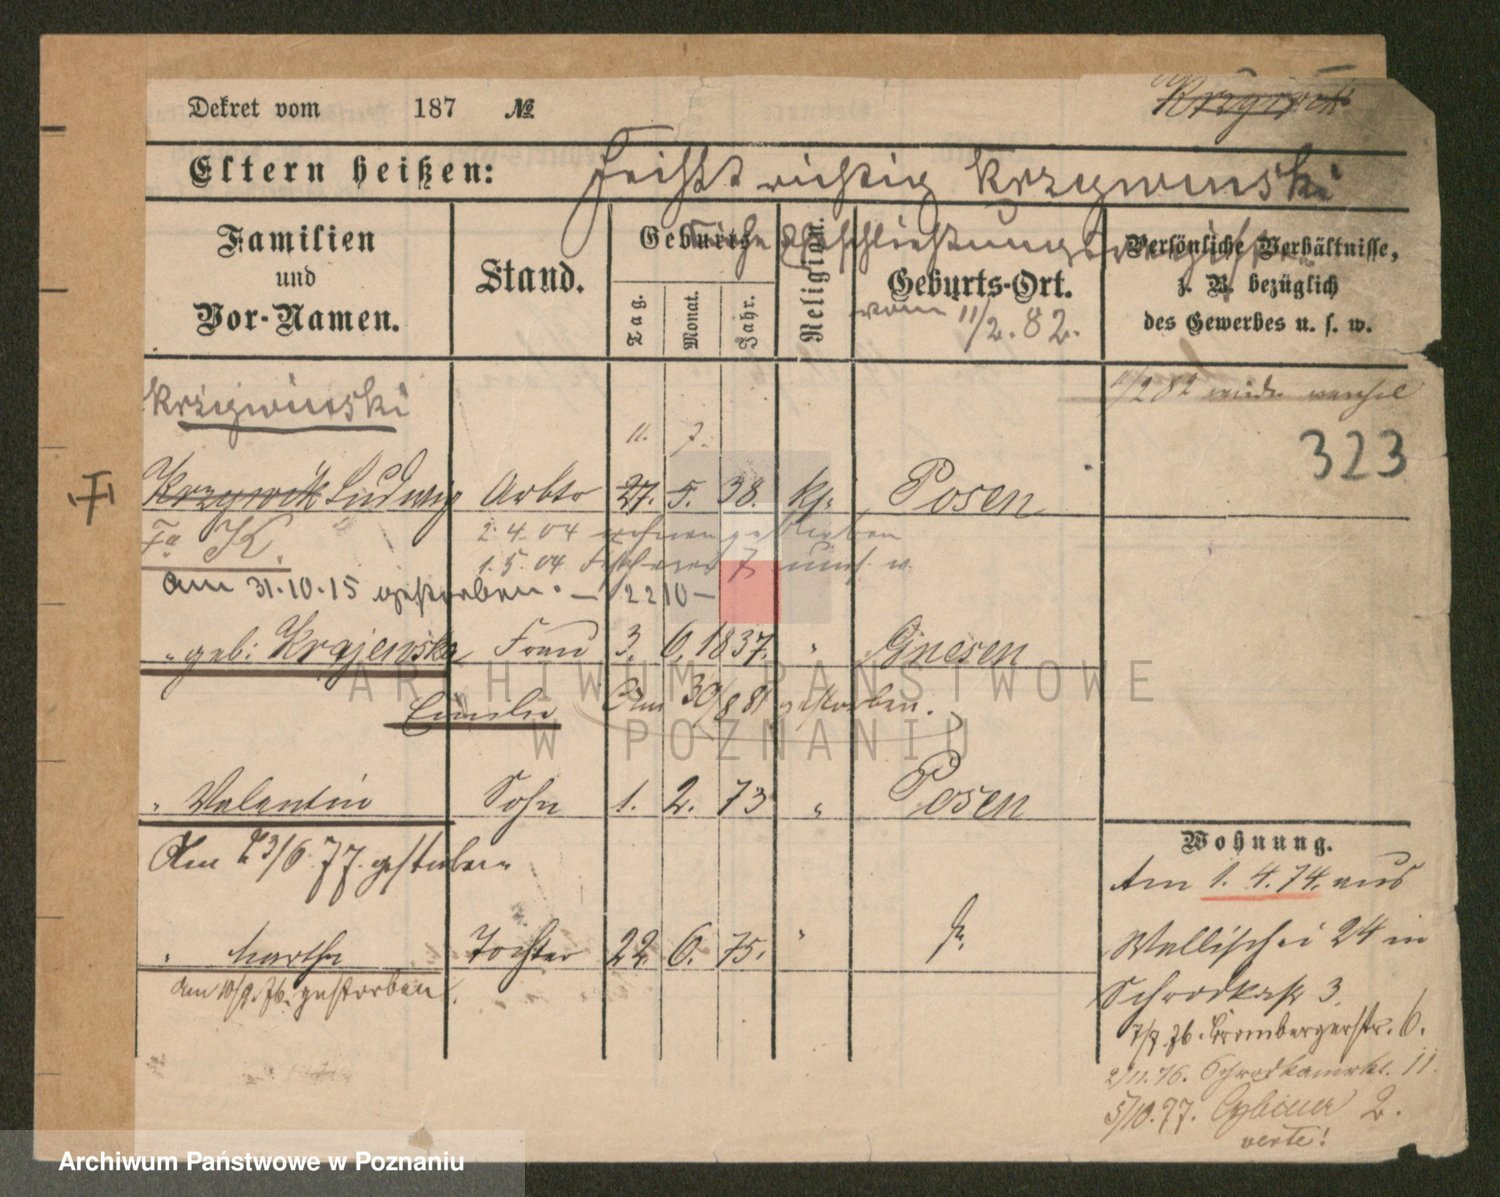 Dekret vom 187 №
Krzywik
Eltern heißen: heißt richtig Krzywinski
Siehe Eheschließungsregister
vom 11/2. 82.
Familien und Vor-Namen.
Stand.
Geburts
Tag. Monat. Jahr.
Religion.
Geburts-Ort.
Persönliche Verhältnisse, z. B. bezüglich des Gewerbes u. s. w.
Krzywinski
11. 7.
323
Krzywik Ludwig Arbtr 27. 5. 38. kt. Posen
2. 4. 04
Fa K. 1. 5. 04
am 31.10.15 gestorben. — 2210 —
" geb: Krajewska Frau 3. 6. 1837. " Gnesen
Emilie Am 30/8 81 gestorben.
" Valentin Sohn 1. 2. 73 " Posen
Am 23/6. 77. gestorben
" Martha Tochter 22. 6. 75. "
am 10/9. 76. gestorben.
Wohnung.
Am 1. 4. 74. aus
Wallischei 24 in
Schrodkastr 3.
7/7. 76. Brombergerstr. 6.
2/11. 76. Schrodkamrkt. 11.
5/10. 77. Cybina 2.
verte!
ARCHIWUM PAŃSTWOWE
W POZNANIU
Archiwum Państwowe w Poznaniu